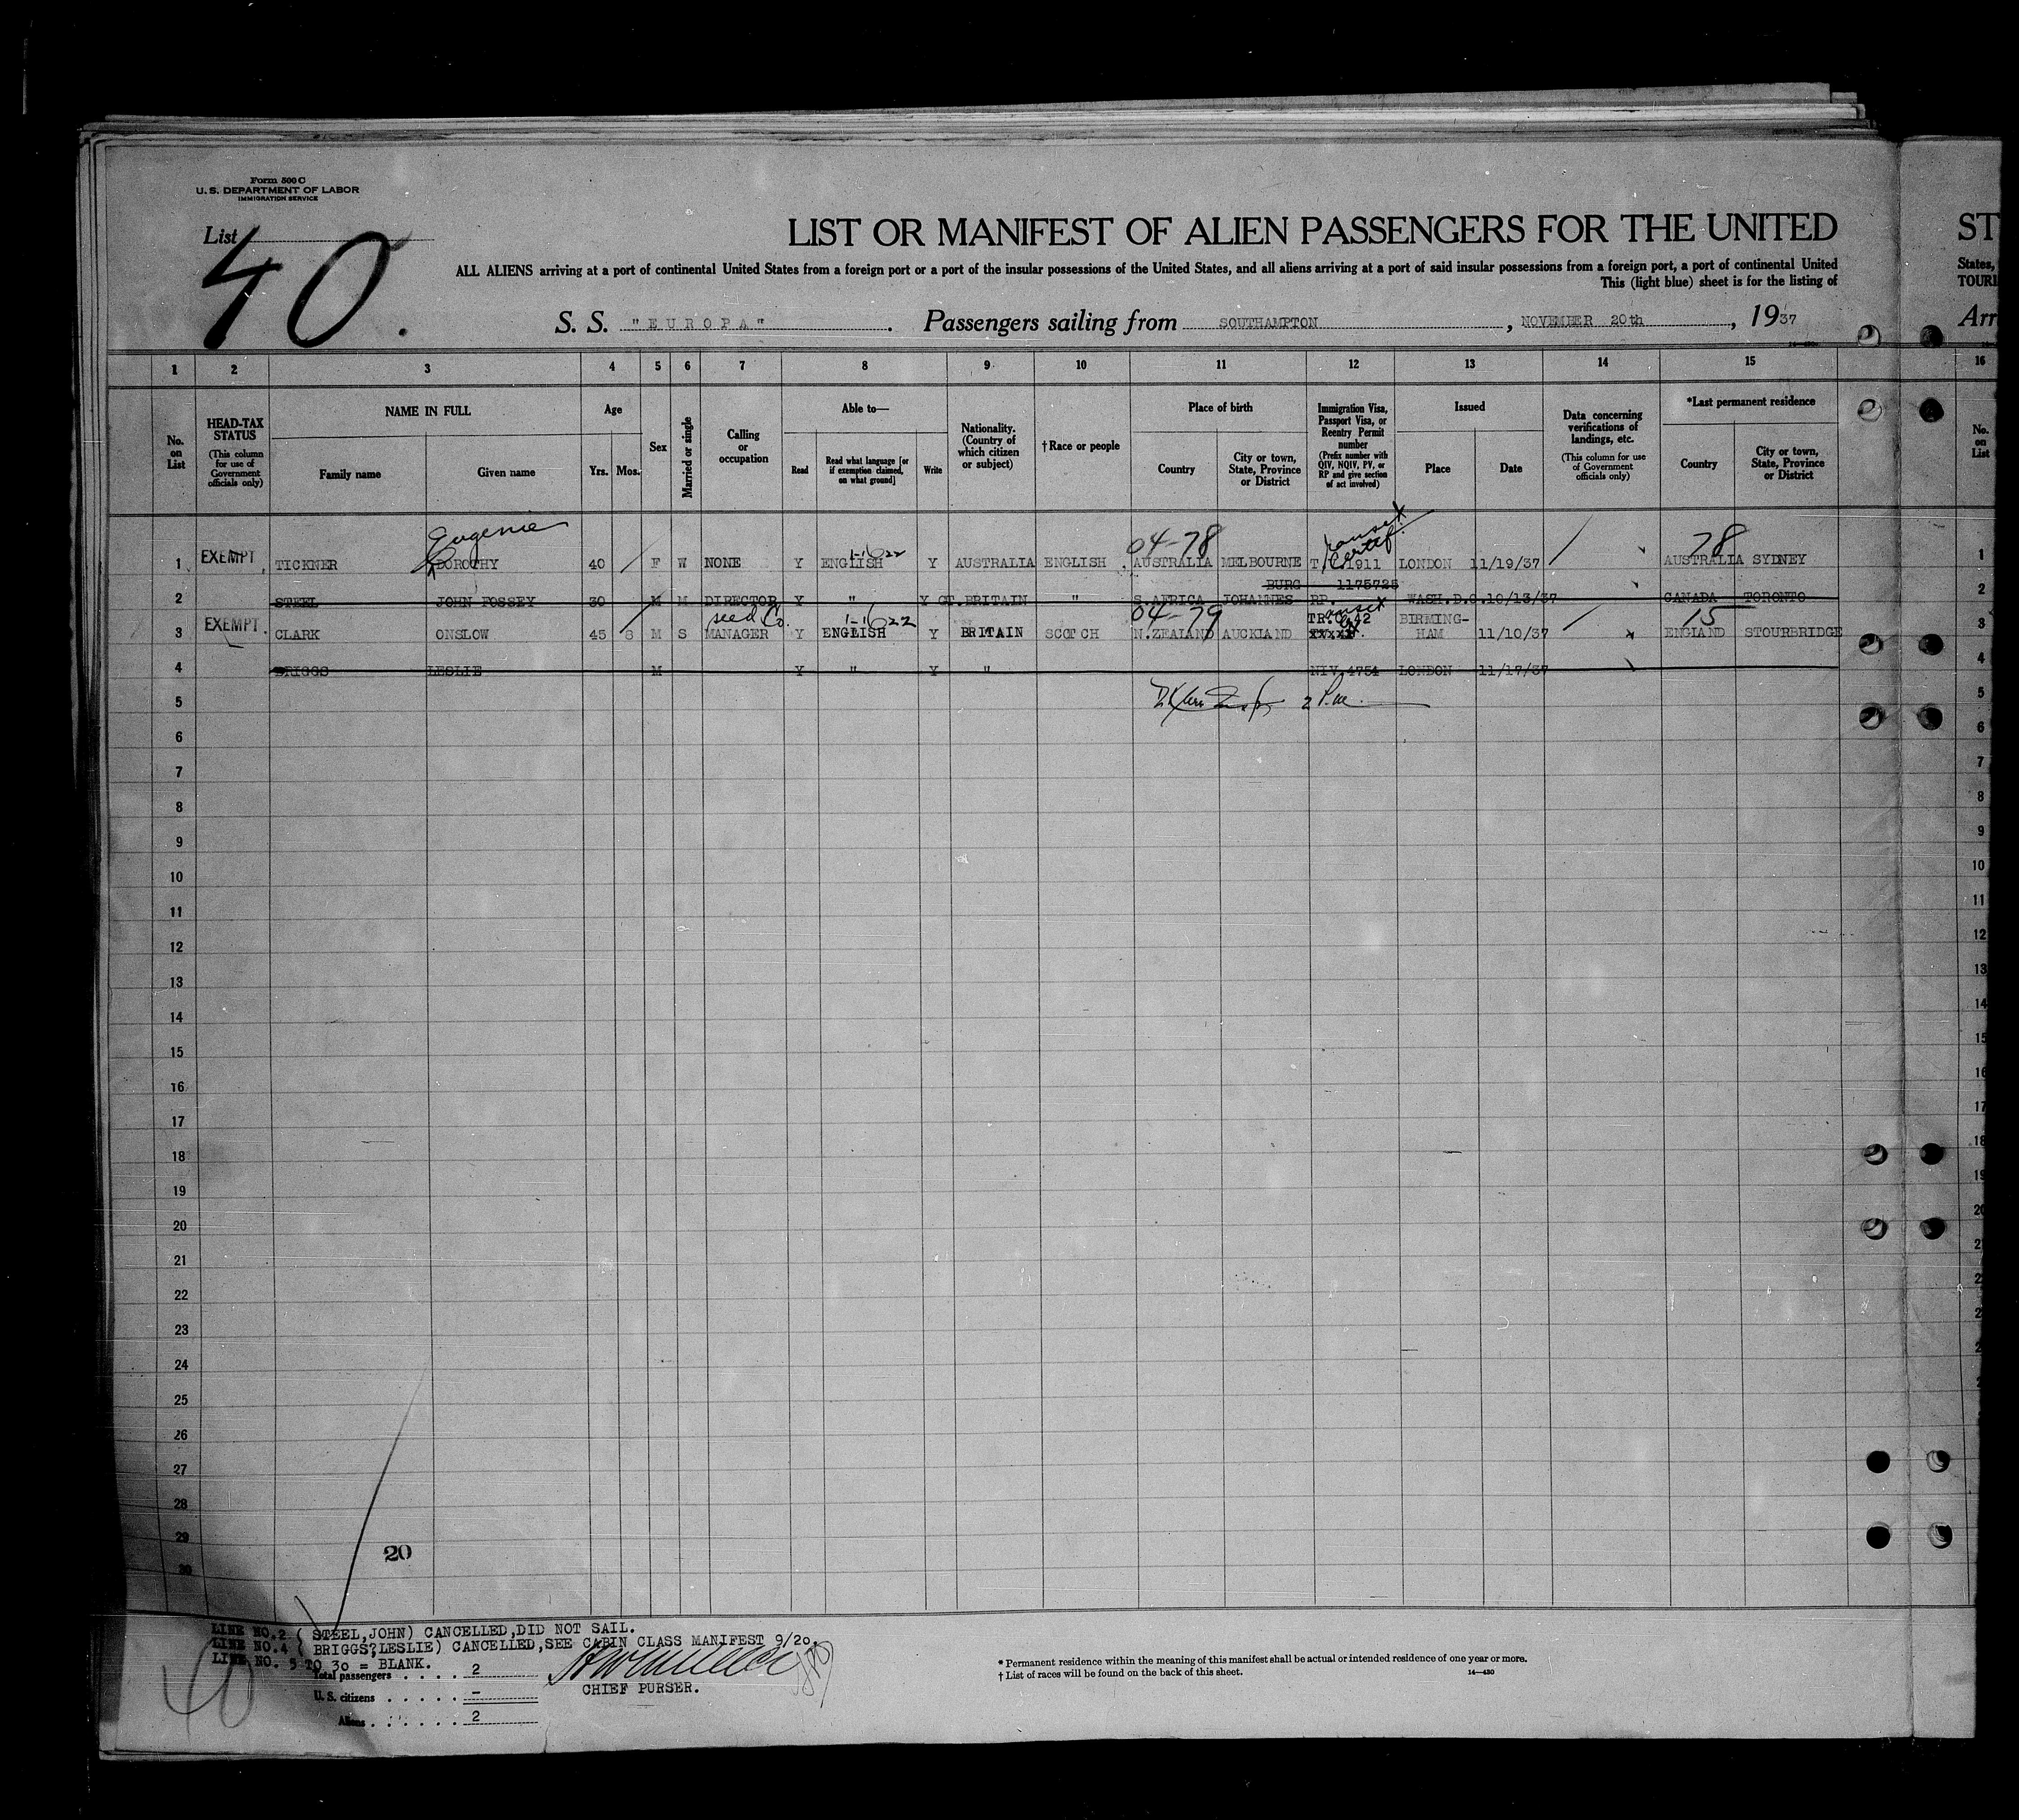 Form 500 C
U. S. DEPARTMENT OF LABOR
IMMIGRATION SERVICE
List 40.
LIST OR MANIFEST OF ALIEN PASSENGERS FOR THE UNITED
ST
ALL ALIENS arriving at a port of continental United States from a foreign port or a port of the insular possessions of the United States, and all aliens arriving at a port of said insular possessions from a foreign port, a port of continental United
States,
This (light blue) sheet is for the listing of
TOURI
S. S. "EUROPA". Passengers sailing from SOUTHAMPTON, NOVEMBER 20th, 1937
Arr
1 2 3 4 5 6 7 8 9 10 11 12 13 14 15 16
No. on List
HEAD-TAX STATUS (This column for use of Government officials only)
NAME IN FULL
Family name
Given name
Age
Yrs. Mos.
Sex
Married or single
Calling or occupation
Able to—
Read
Read what language [or if exemption claimed, on what ground]
Write
Nationality. (Country of which citizen or subject)
† Race or people
Place of birth
Country
City or town, State, Province or District
Immigration Visa, Passport Visa, or Reentry Permit number (Prefix number with QIV, NQIV, PV, or RP and give section of act involved)
Issued
Place
Date
Data concerning verifications of landings, etc. (This column for use of Government officials only)
*Last permanent residence
Country
City or town, State, Province or District
No. on List
Eugenie 04-78 78
1 EXEMPT TICKNER DOROTHY 40 F W NONE Y ENGLISH Y AUSTRALIA ENGLISH AUSTRALIA MELBOURNE 1911 LONDON 11/19/37 AUSTRALIA SYDNEY 1
BURG 1175725
2 STEEL JOHN FOSSEY 30 M M DIRECTOR Y " Y GT.BRITAIN " S.AFRICA JOHANNES RP. WASH.D.C. 10/13/37 CANADA TORONTO 2
seed Co. 04-79 15
3 EXEMPT. CLARK ONSLOW 45 S M S MANAGER Y ENGLISH Y BRITAIN SCOTCH N.ZEALAND AUCKLAND TR.C. 42 BIRMING-HAM 11/10/37 ENGLAND STOURBRIDGE 3
4 BRIGGS LESLIE M Y " Y " NIV 4754 LONDON 11/17/37 4
5 5
6 6
7 7
8 8
9 9
10 10
11 11
12 12
13 13
14 14
15 15
16 16
17 17
18 18
19 19
20 20
21
22
23
24
25
26
27
28
29
30
20
LINE NO.2 ( STEEL,JOHN) CANCELLED,DID NOT SAIL.
LINE NO.4 ( BRIGGS,LESLIE) CANCELLED,SEE CABIN CLASS MANIFEST 9/20.
LINE NO. 5 TO 30 = BLANK.
Total passengers . . . . 2
U. S. citizens . . . . . –
Aliens . . . . . . 2
CHIEF PURSER.
40
* Permanent residence within the meaning of this manifest shall be actual or intended residence of one year or more.
† List of races will be found on the back of this sheet.
14—430